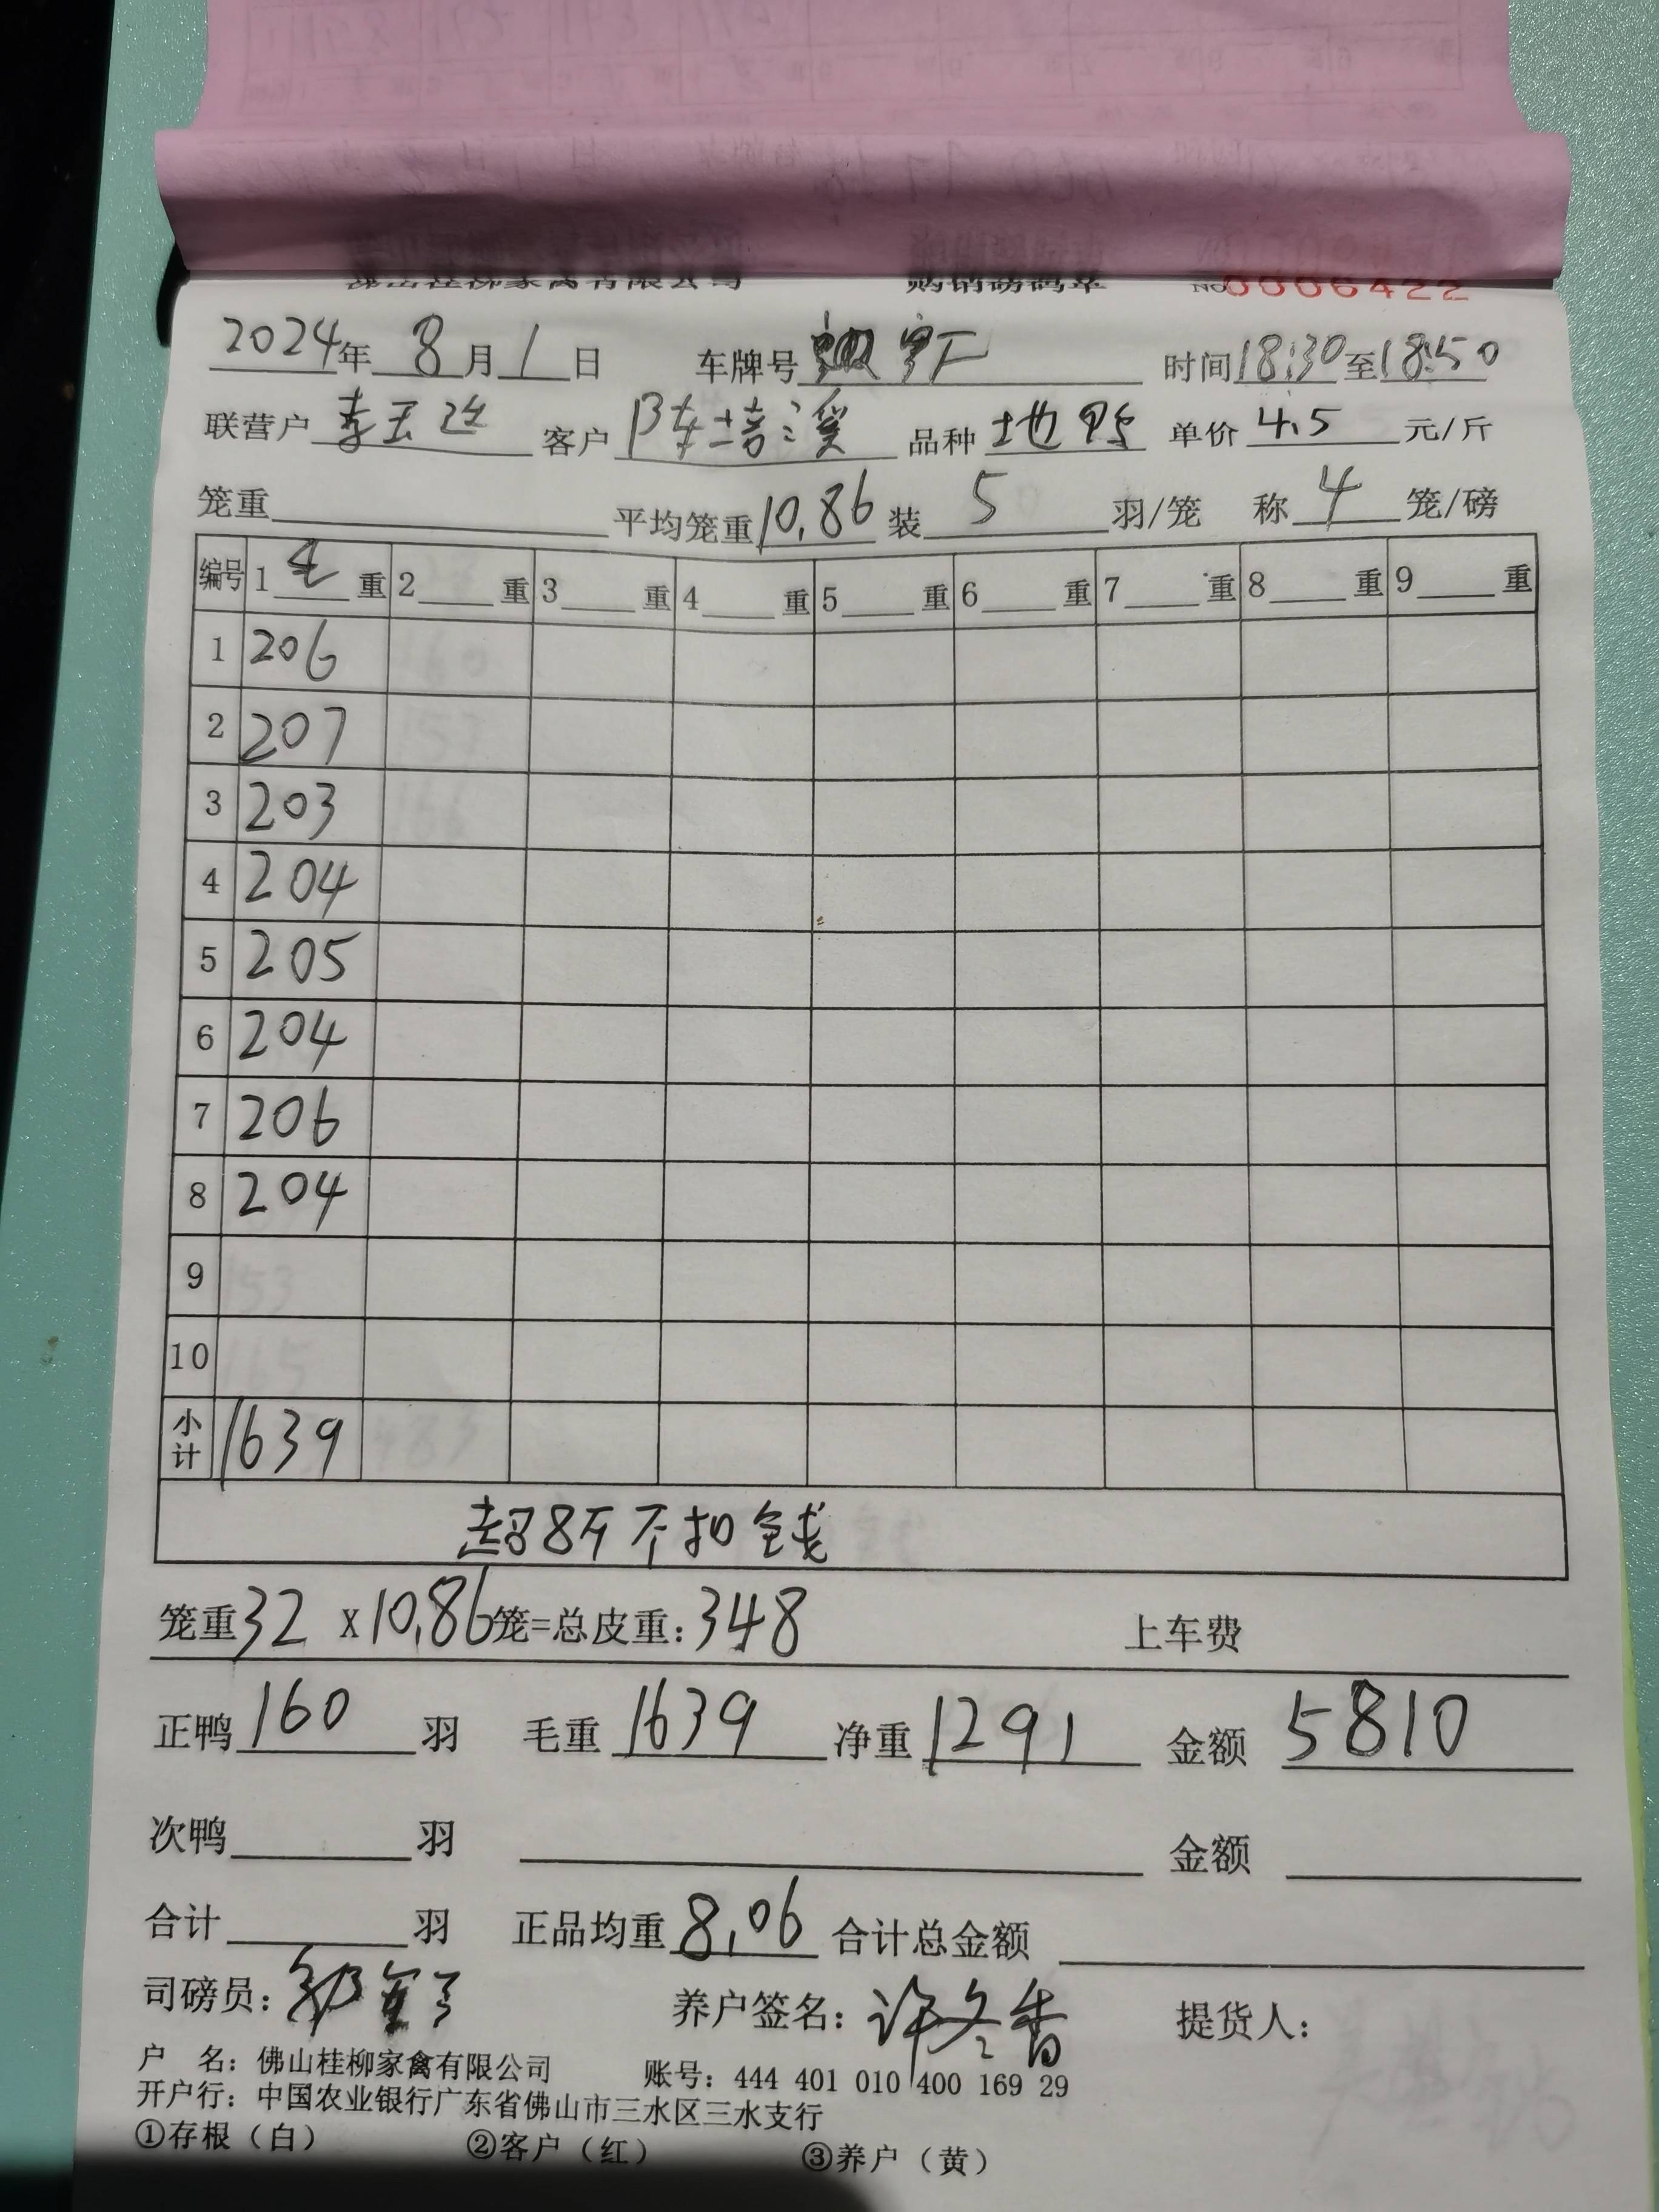 佛山桂柳家禽有限公司 购销磅码单 No 0006422
2024年 8月1日 车牌号 宰厂 时间18:30至18:50
联营户 李玉连 客户 陈培溪 品种 地鸭 单价 4.5 元/斤
笼重 平均笼重10.86 装 5 羽/笼 称 4 笼/磅
编号 1 毛 重 2 重 3 重 4 重 5 重 6 重 7 重 8 重 9 重
1 206
2 207
3 203
4 204
5 205
6 204
7 206
8 204
9
10
小计 1639
超8斤不扣钱
笼重32 x10.86笼=总皮重:348 上车费
正鸭 160 羽 毛重 1639 净重 1291 金额 5810
次鸭 羽 金额
合计 羽 正品均重 8.06 合计总金额
司磅员: 养户签名: 许冬香 提货人:
户 名: 佛山桂柳家禽有限公司 账号: 444 401 010 400 169 29
开户行: 中国农业银行广东省佛山市三水区三水支行
①存根（白） ②客户（红） ③养户（黄）